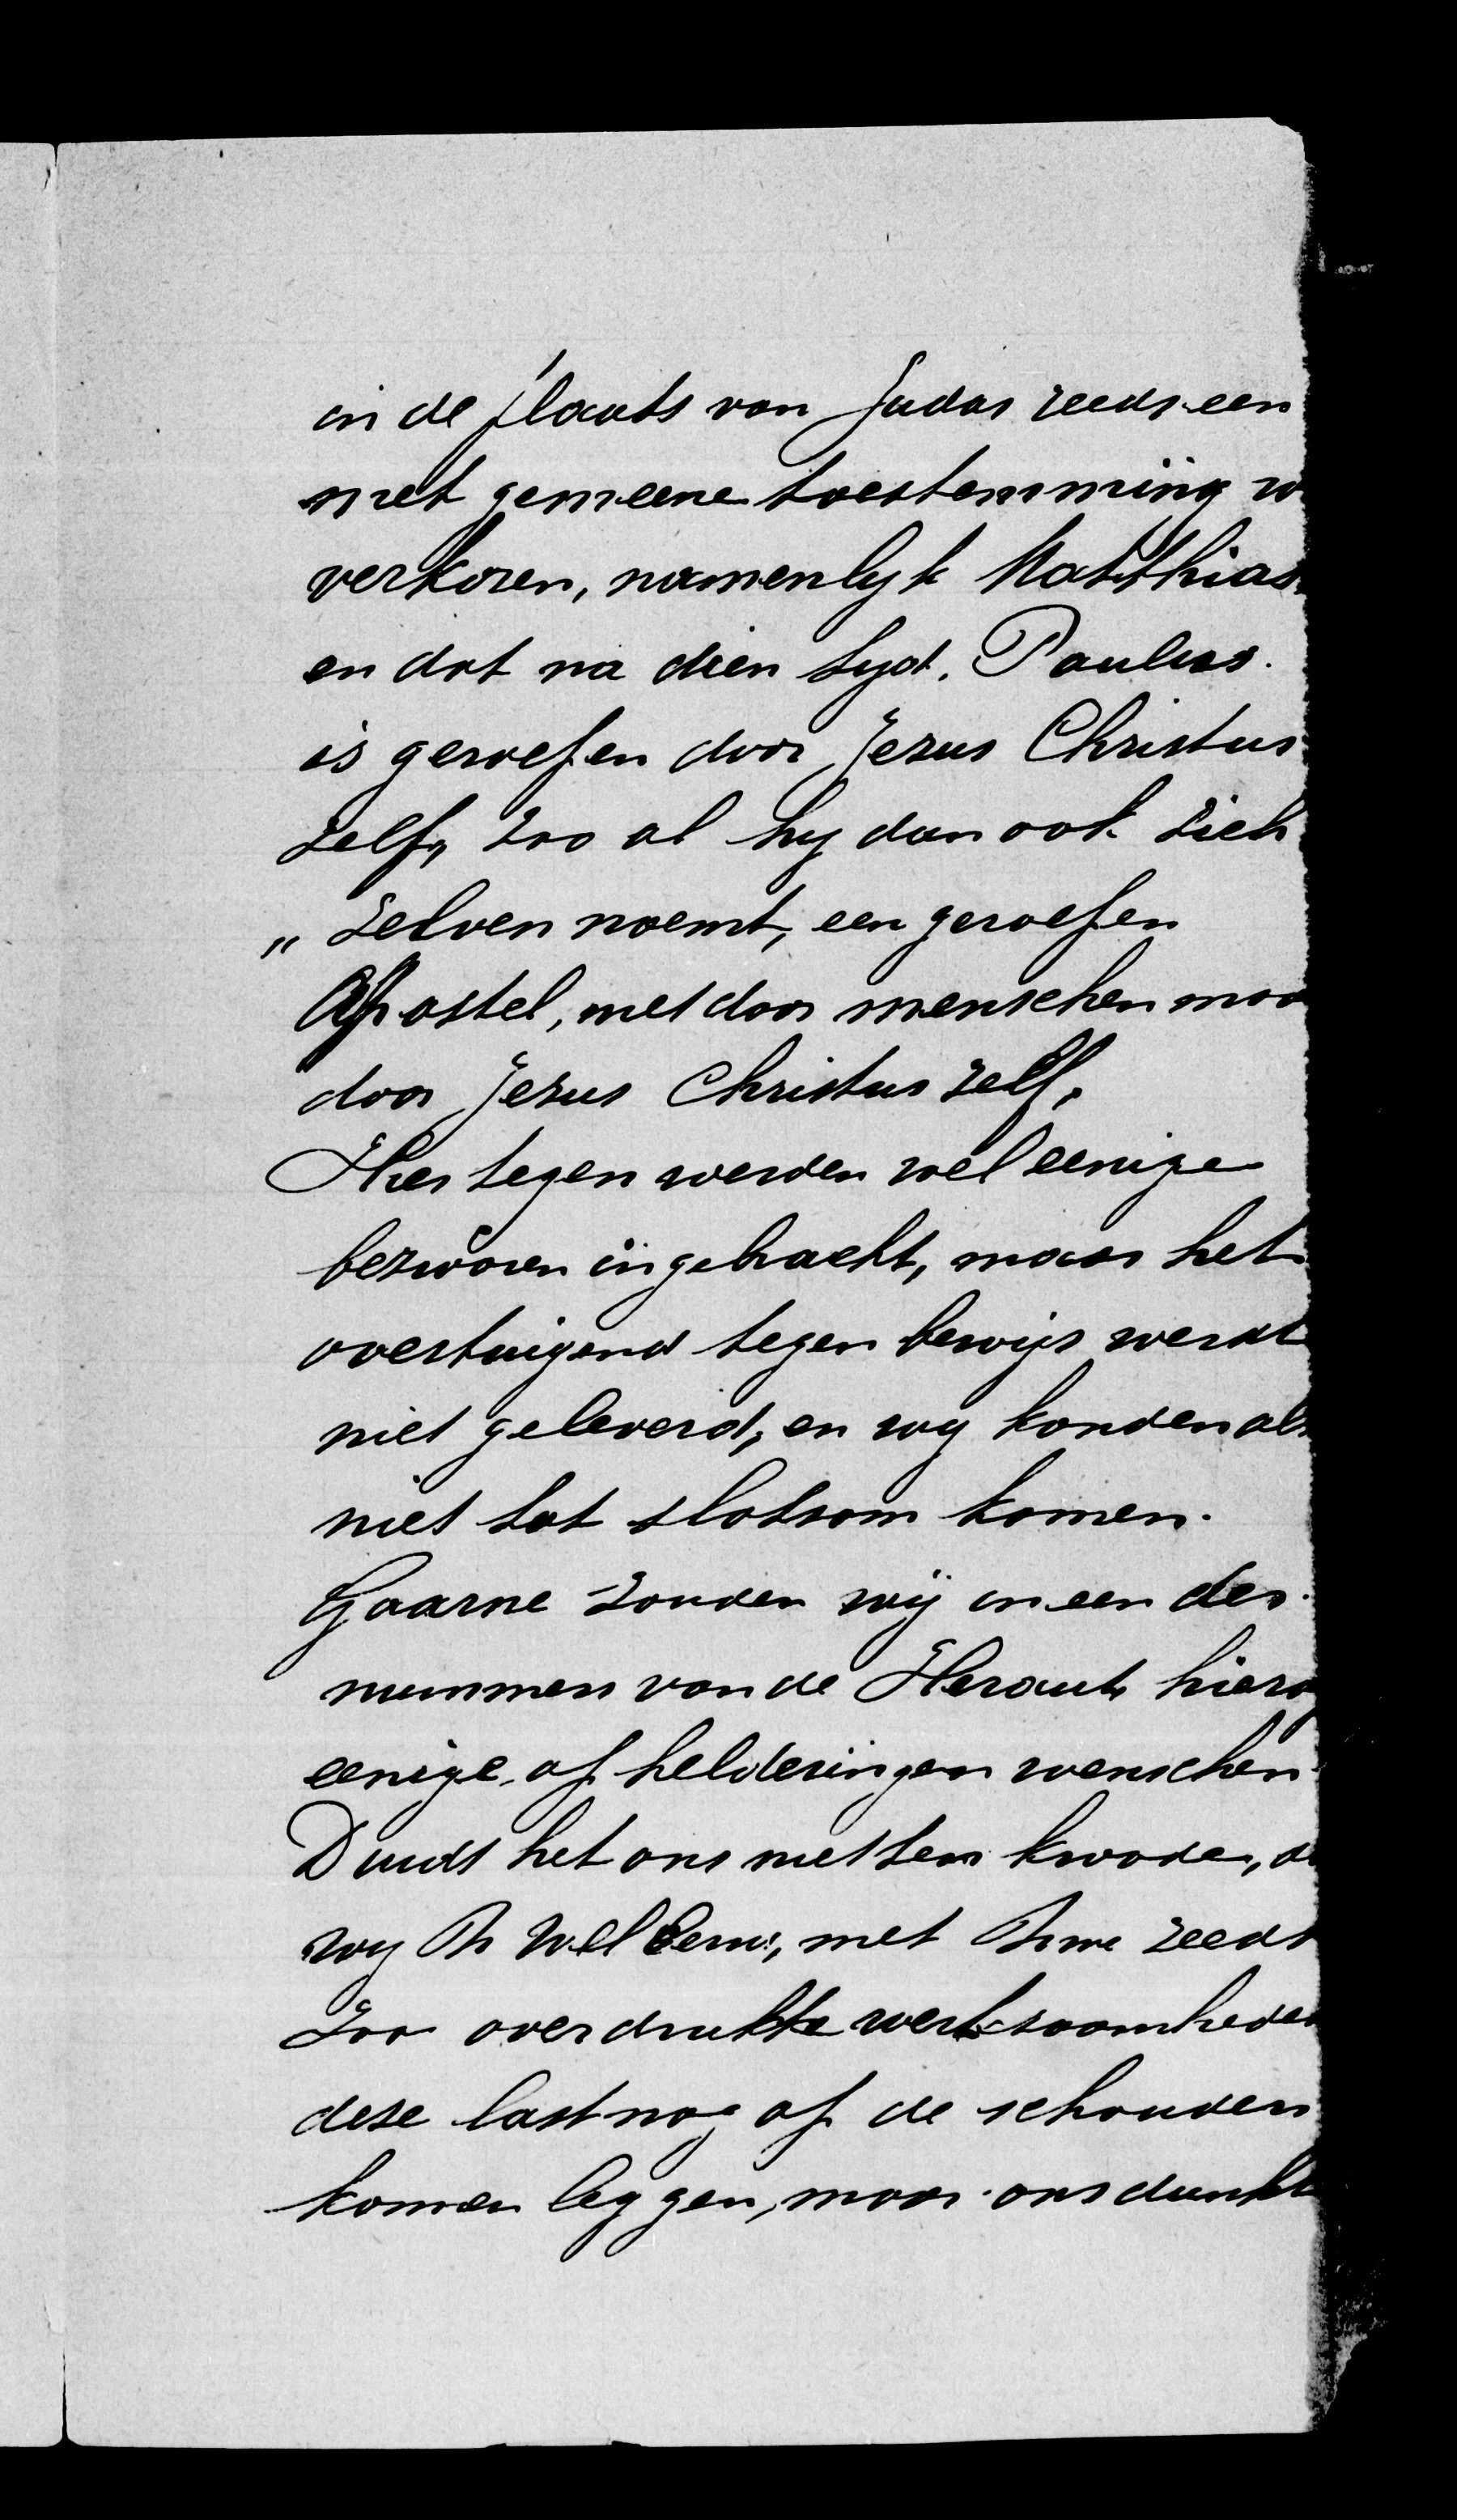 in de plaats van Judas reeds een
met gemeene toestemming w
verkoren, namenlyk Matthias
en dat na dien tyd. Paulus.
is geroepen door Jezus Christus
zelf, zoo al hy dan ook zich
„ zelven noemt, een geroepen
Apostel, niet door menschen maa
door Jezus Christus zelf.
Hier tegen werden wel eenige
bezwaren ingebracht, maar het
overtuigend tegen bewijs werdt
niet geleverd, en wy konden als
niet tot slotsom komen.
Gaarne zouden wij in een der
nummers van de Heraut hiero
eenige op helderingen wenschen
Duidt het ons niet ten kwade, d
wy U Wel Eerw, met Uwe reeds
Zoo over drukke werkzaamheden
deze last nog op de schouders
komen leggen, maar ons dunkt